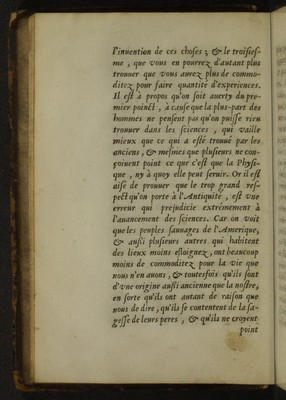 l'inuention de ces choses ; & le troisies-
me , que vous en pourrez d'autant plus
trouuer que vous aurez plus de commo-
ditez pour faire quantité d'experiences.
Il est à propos qu'on soit auerty du pre-
mier poinct, à cause que la plus-part des
hommes ne pensent pas qu'on puisse rien
trouuer dans les sciences , qui vaille
mieux que ce qui a esté trouué par les
anciens, & mesmes que plusieurs ne con-
çoiuent point ce que c'est que la Physi-
que , ny à quoy elle peut seruir. Or il est
aisé de prouuer que le trop grand res-
pect qu'on porte à l'Antiquité , est vne
erreur qui prejudicie extrémement à
l'auancement des sciences. Car on voit
que les peuples sauuages de l'Amerique,
& aussi plusieurs autres qui habitent
des lieux moins esloignez , ont beaucoup
moins de commoditez pour la vie que
nous n'en auons , & toutesfois qu'ils sont
d'vne origine aussi ancienne que la nostre,
en sorte qu'ils ont autant de raison que
nous de dire, qu'ils se contentent de la sa-
gesse de leurs peres , & qu'ils ne croyent
point